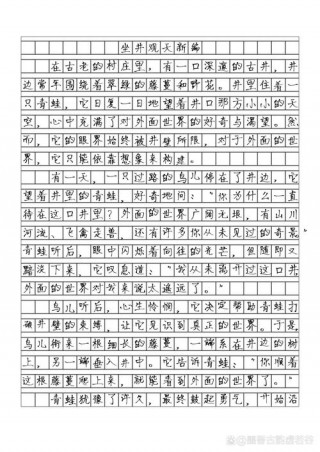 坐井观天新编
在古老的村庄里，有一口深邃的古井，井
边常年围绕着翠绿的藤蔓和野花。井里住着一
只青蛙，它日复一日地望着井口那方小小的天
空，心中充满了对外面世界的好奇与渴望。然
而，它的眼界始终被井壁所限，对于外面的世
界，它只能依靠想象来构建。
有一天，一只过路的鸟儿停在了井边，它
望着井里的青蛙，好奇地问：“你为什么一直
待在这口井里？外面的世界广阔无垠，有山川
河流、飞禽走兽，还有许多你从未见过的奇景
青蛙听后，眼中闪烁着向往的光芒，但随即又
黯淡下来，它叹息道：“我从未离开过这口井
外面的世界对我来说太遥远了。”
鸟儿听后，心生怜悯，它决定帮助青蛙打
破井壁的束缚，让它见识到真正的世界。于是
鸟儿衔来一根细长的藤蔓，一端系在井边的树
上，另一端垂入井中。它告诉青蛙：“你顺着
这根藤蔓爬上来，就能看到外面的世界了。”
青蛙犹豫了许久，最终鼓起勇气，开始沿